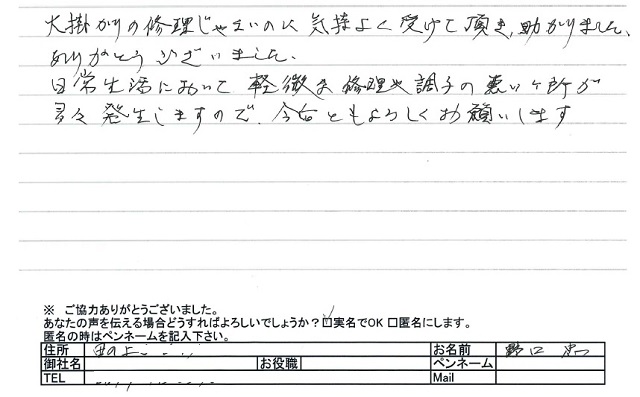 大掛かりの修理じゃないのに気持よく受けて頂き、助かりました。
ありがとうございました。
日常生活において軽微な修理や調子の悪いケ所が
多々発生しますので、今后ともよろしくお願いします
※ ご協力ありがとうございました。
あなたの声を伝える場合どうすればよろしいでしょうか？☑実名でOK □匿名にします。
匿名の時はペンネームを記入下さい。
住所 お名前 野口
御社名 お役職 ペンネーム
TEL Mail